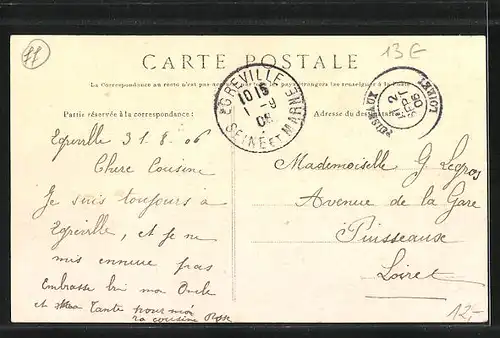 ff
13 E
CARTE POSTALE
La Correspondance au recto n'est pas
Partie réservée à la correspondance :
Adresse du destinataire
EGREVILLE
10 15
1 - 9
06
SEINE ET MARNE
PUISEAUX
2
SEPT
06
LOIRET
Egreville 31. 8. 06
Chere Cousine
Je suis toujours à
Egreville, et je ne
mis ennuie pas
Embrasse bien mon Oncle
et ma Tante pour moi
ta cousine
Mademoiselle G Legros
Avenue de la Gare
Puisseaux
Loiret
12,-